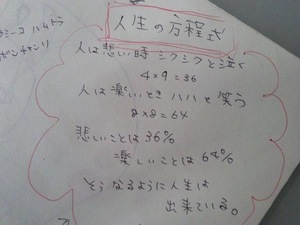 人生の方程式
人は悲い時シクシクと泣く
4×9=36
人は楽いときハハと笑う
8×8=64
悲しいことは36%
楽しいことは64%
そうなるように人生は
出来ている。